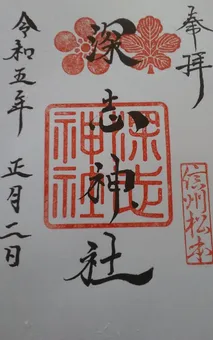 奉拝
深志神社
深志
神社
信州松本
令和五年
正月二日